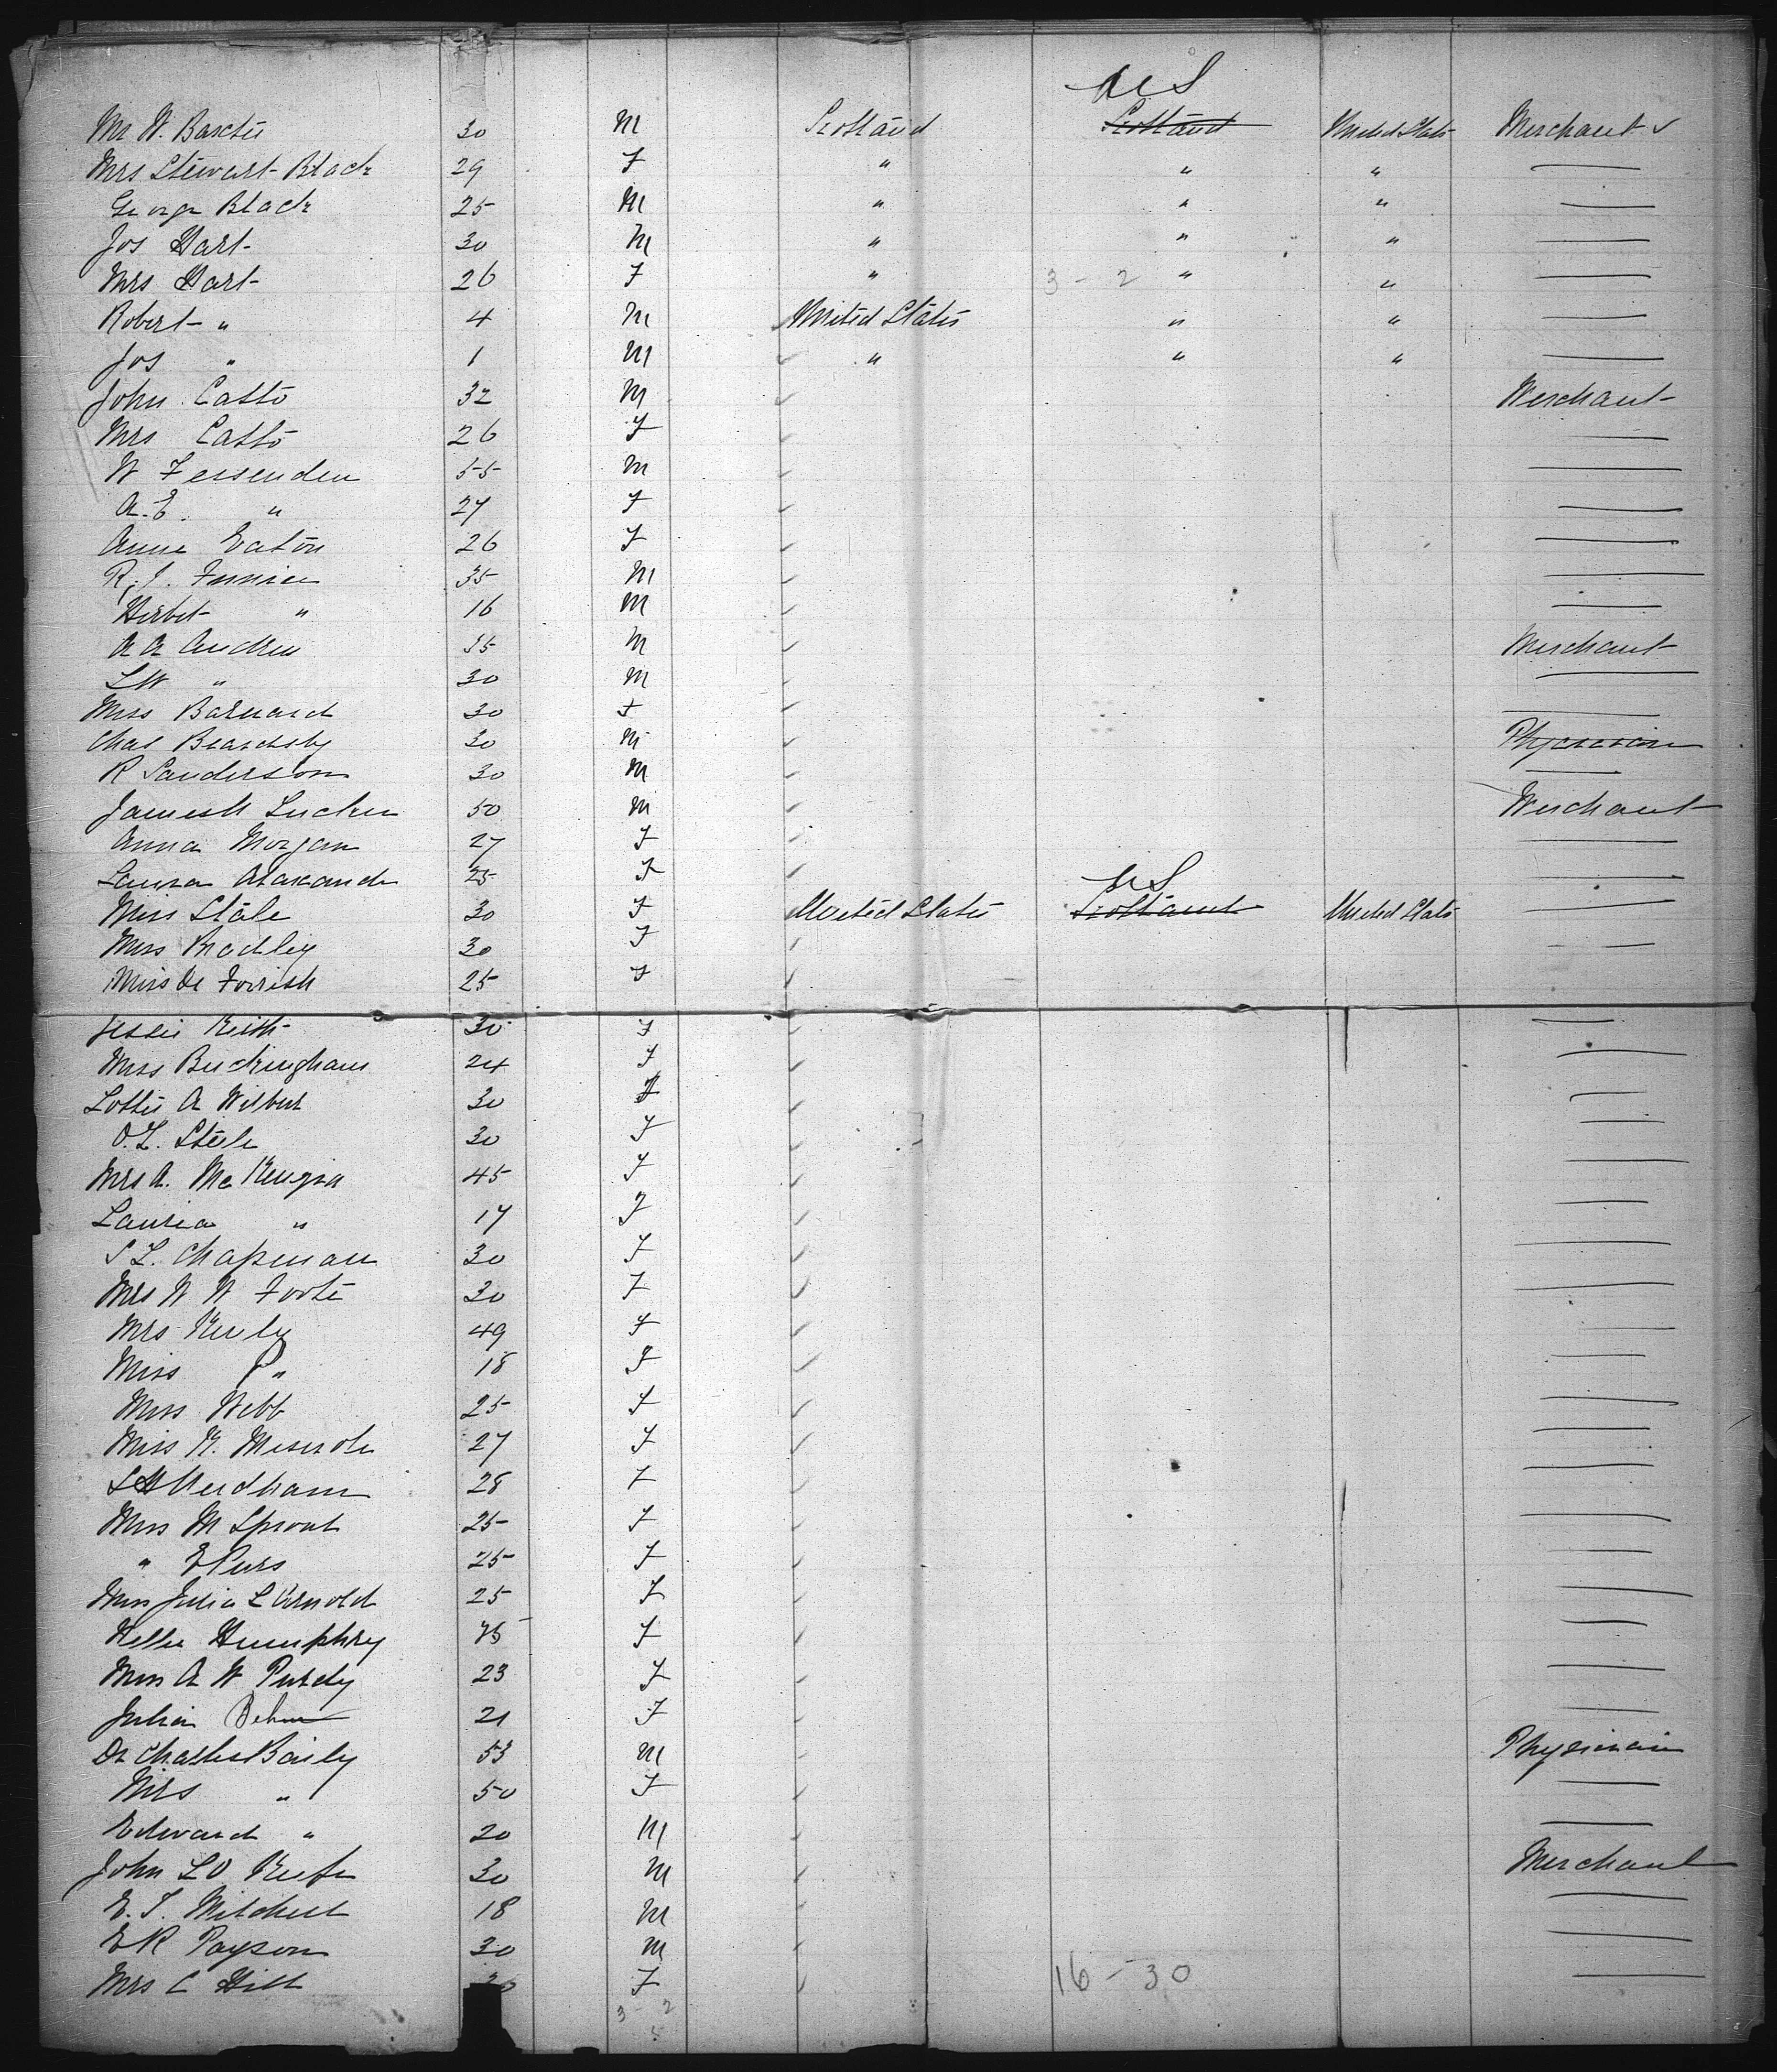 US
Mr W. Baxter 30 M Scotland Scotland United States Merchant
Mrs Stewart Black 29 F " " "
George Black 25 M " " "
Jos Hart 30 M " " "
Mrs Hart 26 F " 3 - 2 " "
Robert " 4 M United States " "
Jos " 1 M " " "
John Catto 32 M Merchant
Mrs Catto 26 F
W Fessenden 55 M
A. E. " 27 F
Anne Eaton 26 F
R. J. 35 M
Herbet " 16 M
A A Andrew 35 M Merchant
LW " 30 M
Miss Barnard 30 F
Chas Beardsly 30 M Physician
R Sanderson 30 M
James H 50 M Merchant
Anna Morgan 27 F
US
Laura Alaxande 25 F
Miss Stale 30 F United States Scotland United States
Miss Bradley 30 F
Miss De Forrish 25 F
Jessie Keith 30 F
Miss Buckingham 24 F
Lottie A Wilbur 30 F
O. L. Steele 30 F
Mrs A. McKenzia 45 F
Lauria " 17 F
S L. Chapman 30 F
Mrs W W Foote 30 F
Mrs 49 F
Miss P " 18 F
Miss Webb 25 F
Miss K. Meserole 27 F
S H Needham 28 F
Miss M Sprout 25 F
" E Purs 25 F
Miss Julia L Arnold 25 F
Nellie Humphrey 75 F
Miss A W Purdy 23 F
Julia 21 F
Dr Charles Baily 53 M Physician
Mrs " 50 F
Edward " 20 M
John L O Keefe 30 M Merchant
E. T. Mitchell 18 M
E R Payson 30 M
Mrs C Hill 30 F 16 - 30
3 - 2
5